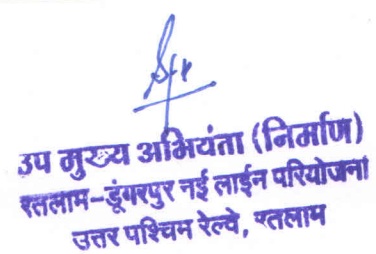 उप मुख्य अभियंता (निर्माण)
रतलाम-डूंगरपुर नई लाईन परियोजना
उत्तर पश्चिम रेल्वे, रतलाम